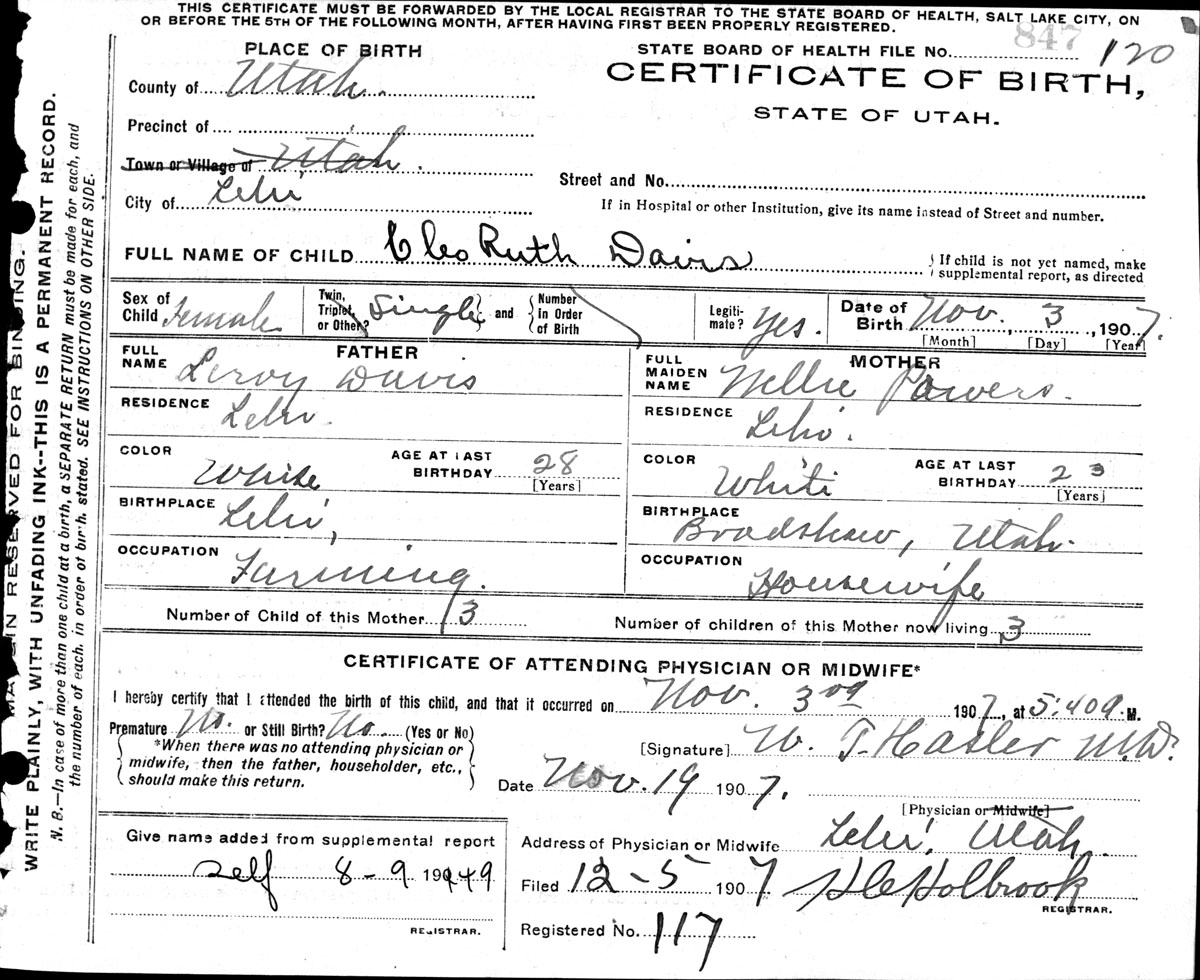 THIS CERTIFICATE MUST BE FORWARDED BY THE LOCAL REGISTRAR TO THE STATE BOARD OF HEALTH, SALT LAKE CITY, ON
OR BEFORE THE 5TH OF THE FOLLOWING MONTH, AFTER HAVING FIRST BEEN PROPERLY REGISTERED.
PLACE OF BIRTH
STATE BOARD OF HEALTH FILE NO. 847 120
CERTIFICATE OF BIRTH,
STATE OF UTAH.
County of Utah.
Precinct of
Town or Village of Utah.
City of Lehi
Street and No.
If in Hospital or other Institution, give its name instead of Street and number.
FULL NAME OF CHILD Cleo Ruth Davis
If child is not yet named, make
supplemental report, as directed
Sex of Child Female
Twin, Triplet, or Other? Single and Number in Order of Birth
Legitimate? Yes.
Date of Birth Nov. 3, 1907.
[Month] [Day] [Year]
FATHER
FULL NAME Leroy Davis
RESIDENCE Lehi.
COLOR White
AGE AT LAST BIRTHDAY 28
[Years]
BIRTHPLACE Lehi,
OCCUPATION Farming.
MOTHER
FULL MAIDEN NAME Nellie Powers.
RESIDENCE Lehi.
COLOR White
AGE AT LAST BIRTHDAY 23
[Years]
BIRTHPLACE Bradshaw, Utah.
OCCUPATION Housewife
Number of Child of this Mother 3
Number of children of this Mother now living 3
CERTIFICATE OF ATTENDING PHYSICIAN OR MIDWIFE*
I hereby certify that I attended the birth of this child, and that it occurred on Nov. 3rd 1907, at 5:40 a. M.
Premature No. or Still Birth? No. (Yes or No)
*When there was no attending physician or
midwife, then the father, householder, etc.,
should make this return.
[Signature] W. T. Hasler M.D.
Date Nov. 19 1907.
[Physician or Midwife]
Give name added from supplemental report
Self 8-9 1949
REGISTRAR.
Address of Physician or Midwife Lehi, Utah.
Filed 12-5 1907 Holbrook
REGISTRAR.
Registered No. 117
MARGIN RESERVED FOR BINDING.
WRITE PLAINLY, WITH UNFADING INK--THIS IS A PERMANENT RECORD.
N. B.—In case of more than one child at a birth, a SEPARATE RETURN must be made for each, and
the number of each, in order of birth, stated. SEE INSTRUCTIONS ON OTHER SIDE.